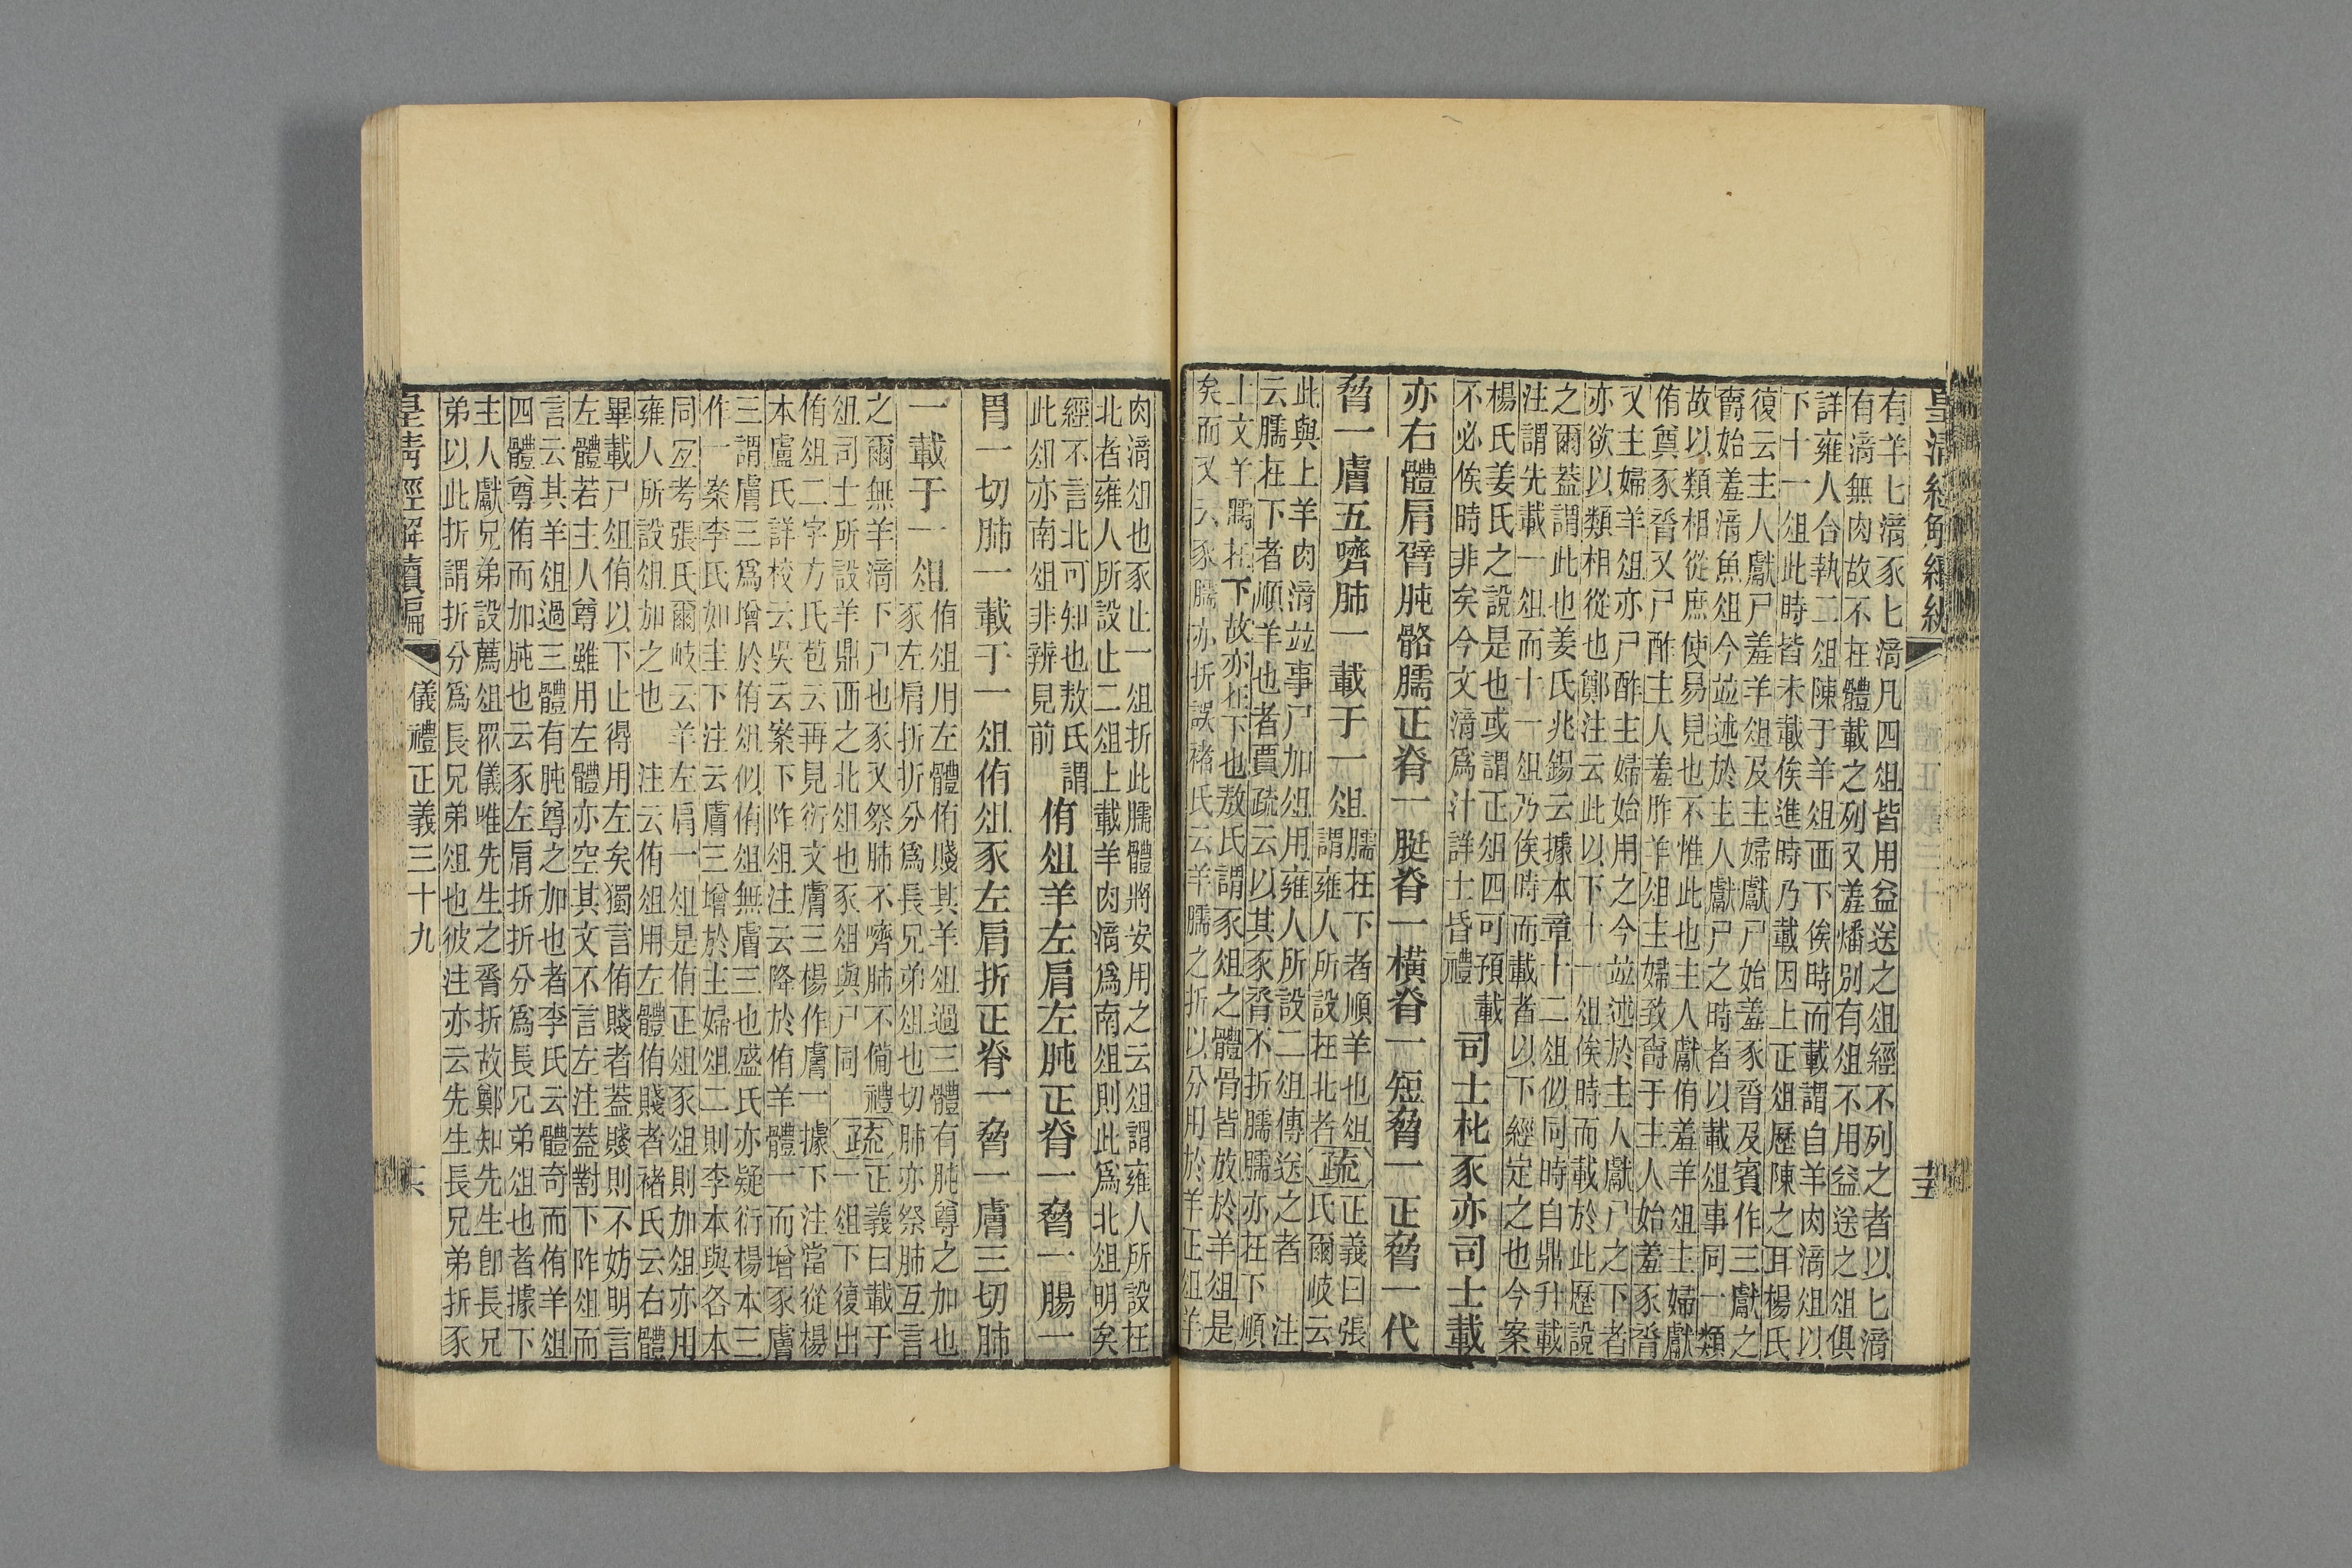 有羊匕湆豕匕湆凡四俎皆用益送之俎經不列之者以匕湆
有湆無肉故不在體載之列又羞燔別有俎不用益送之俎俱
詳雍人合執二俎陳于羊俎西下俟時而載謂自羊肉湆俎以
下十一俎此時皆未載俟進時乃載因上正俎歷陳之耳楊氏
復云主人獻尸羞羊俎及主婦獻尸始羞豕脀及賓作三獻之
爵始羞湆魚俎今竝述於主人獻尸之時者以載俎事同一類
故以類相從庶使易見也不惟此也主人獻侑羞羊俎主婦獻
侑奠豕脀又尸酢主人羞胙羊俎主婦致爵于主人始羞豕脀
又主婦羊俎亦尸酢主婦始用之今竝述於主人獻尸之下者
亦欲以類相從也鄭注云此以下十一俎俟時而載於此歷說
之爾蓋謂此也姜氏兆錫云據本章十二俎似同時自鼎升載
注謂先載一俎而十一俎乃俟時而載者以下經定之也今案
楊氏姜氏之說是也或謂正俎四可預載
不必俟時非矣今文湆爲汁詳士昏禮
司士朼豕亦司士載
亦右體肩臂肫骼臑正脊一脡脊一橫脊一短脅一正脅一代
脅一膚五嚌肺一載于一俎
臑在下者順羊也俎
謂雍人所設在北者
疏
正義曰張
氏爾岐云
此與上羊肉湆竝事尸加俎用雍人所設二俎傳送之者 注
云臑在下者順羊也者賈疏云以其豕脀不折臑臑亦在下順
上文羊臑在下故亦在下也敖氏謂豕俎之體骨皆放於羊俎是
矣而又云豕臑亦折誤褚氏云羊臑之折以分用於羊正俎羊
皇清經解續編
儀禮正義三十九
肉湆俎也豕止一俎折此臑體將安用之云俎謂雍人所設在
北者雍人所設止二俎上載羊肉湆爲南俎則此爲北俎明矣
經不言北可知也敖氏謂
此俎亦南俎非辨見前
侑俎羊左肩左肫正脊一脅一腸一
胃一切肺一載于一俎侑俎豕左肩折正脊一脅一膚三切肺
一載于一俎
侑俎用左體侑賤其羊俎過三體有肫尊之加也
豕左肩折折分爲長兄弟俎也切肺亦祭肺互言
之爾無羊湆下尸也豕又祭肺不嚌肺不備禮
俎司士所設羊鼎西之北俎也豕俎與尸同
疏
正義曰載于
一俎下復出
侑俎二字方氏苞云再見衍文膚三楊作膚一據下注當從楊
本盧氏詳校云吳云案下阼俎注云降於侑羊體一而增豕膚
三謂膚三爲增於侑俎似侑俎無膚三也盛氏亦疑衍楊本三
作一案李氏如圭下注云膚三增於主婦俎二則李本與各本
同仌考張氏爾岐云羊左肩一俎是侑正俎豕俎則加俎亦用
雍人所設俎加之也 注云侑俎用左體侑賤者褚氏云右體
畢載尸俎侑以下止得用左矣獨言侑賤者蓋賤則不妨明言
左體若主人尊雖用左體亦空其文不言左注蓋對下阼俎而
言云其羊俎過三體有肫尊之加也者李氏云體奇而侑羊俎
四體尊侑而加肫也云豕左肩折折分爲長兄弟俎也者據下
主人獻兄弟設薦俎眾儀唯先生之脀折故鄭知先生卽長兄
弟以此折謂折分爲長兄弟俎也彼注亦云先生長兄弟折豕
皇清經解續編
儀禮正義三十九